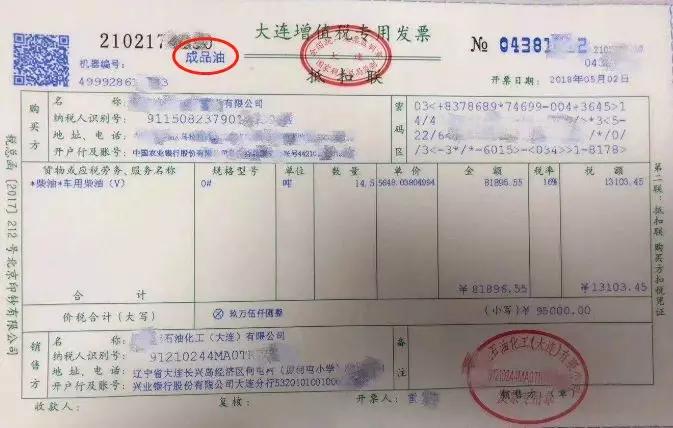 大连增值税专用发票
210217
成品油
№ 04381
机器编号:
49992861
抵扣联
开票日期: 2018年05月02日
购买方
名 称:
有限公司
纳税人识别号: 911508237901
地 址、电 话:
开户行及账号: 中国农业银行股份有限公司
密码区
03<+8378689*74699-004+3645>1
4/4
>*3<5-
22/6
/*/0/
/3<-3*/*-6015>-<034>>1-8178>
货物或应税劳务、服务名称 规格型号 单位 数 量 单 价 金 额 税率 税 额
*柴油*车用柴油（V） 0# 吨 14.5 5648.03804994 81896.55 16% 13103.45
合 计 ￥81896.55 ￥13103.45
价税合计（大写） ⊗ 玖万伍仟圆整 （小写）￥95000.00
销售方
名 称:
石油化工（大连）有限公司
纳税人识别号: 91210244MA0T
地 址、电 话: 辽宁省大连长兴岛经济区何屯
开户行及账号: 兴业银行股份有限公司大连分行532010100100
备注
收款人: 复核: 开票人:
税总函〔2017〕212号北京印钞有限公司
第二联:抵扣联 购买方扣税凭证
石油化工(大连)有限公司
91210244MA0T
发票专用章